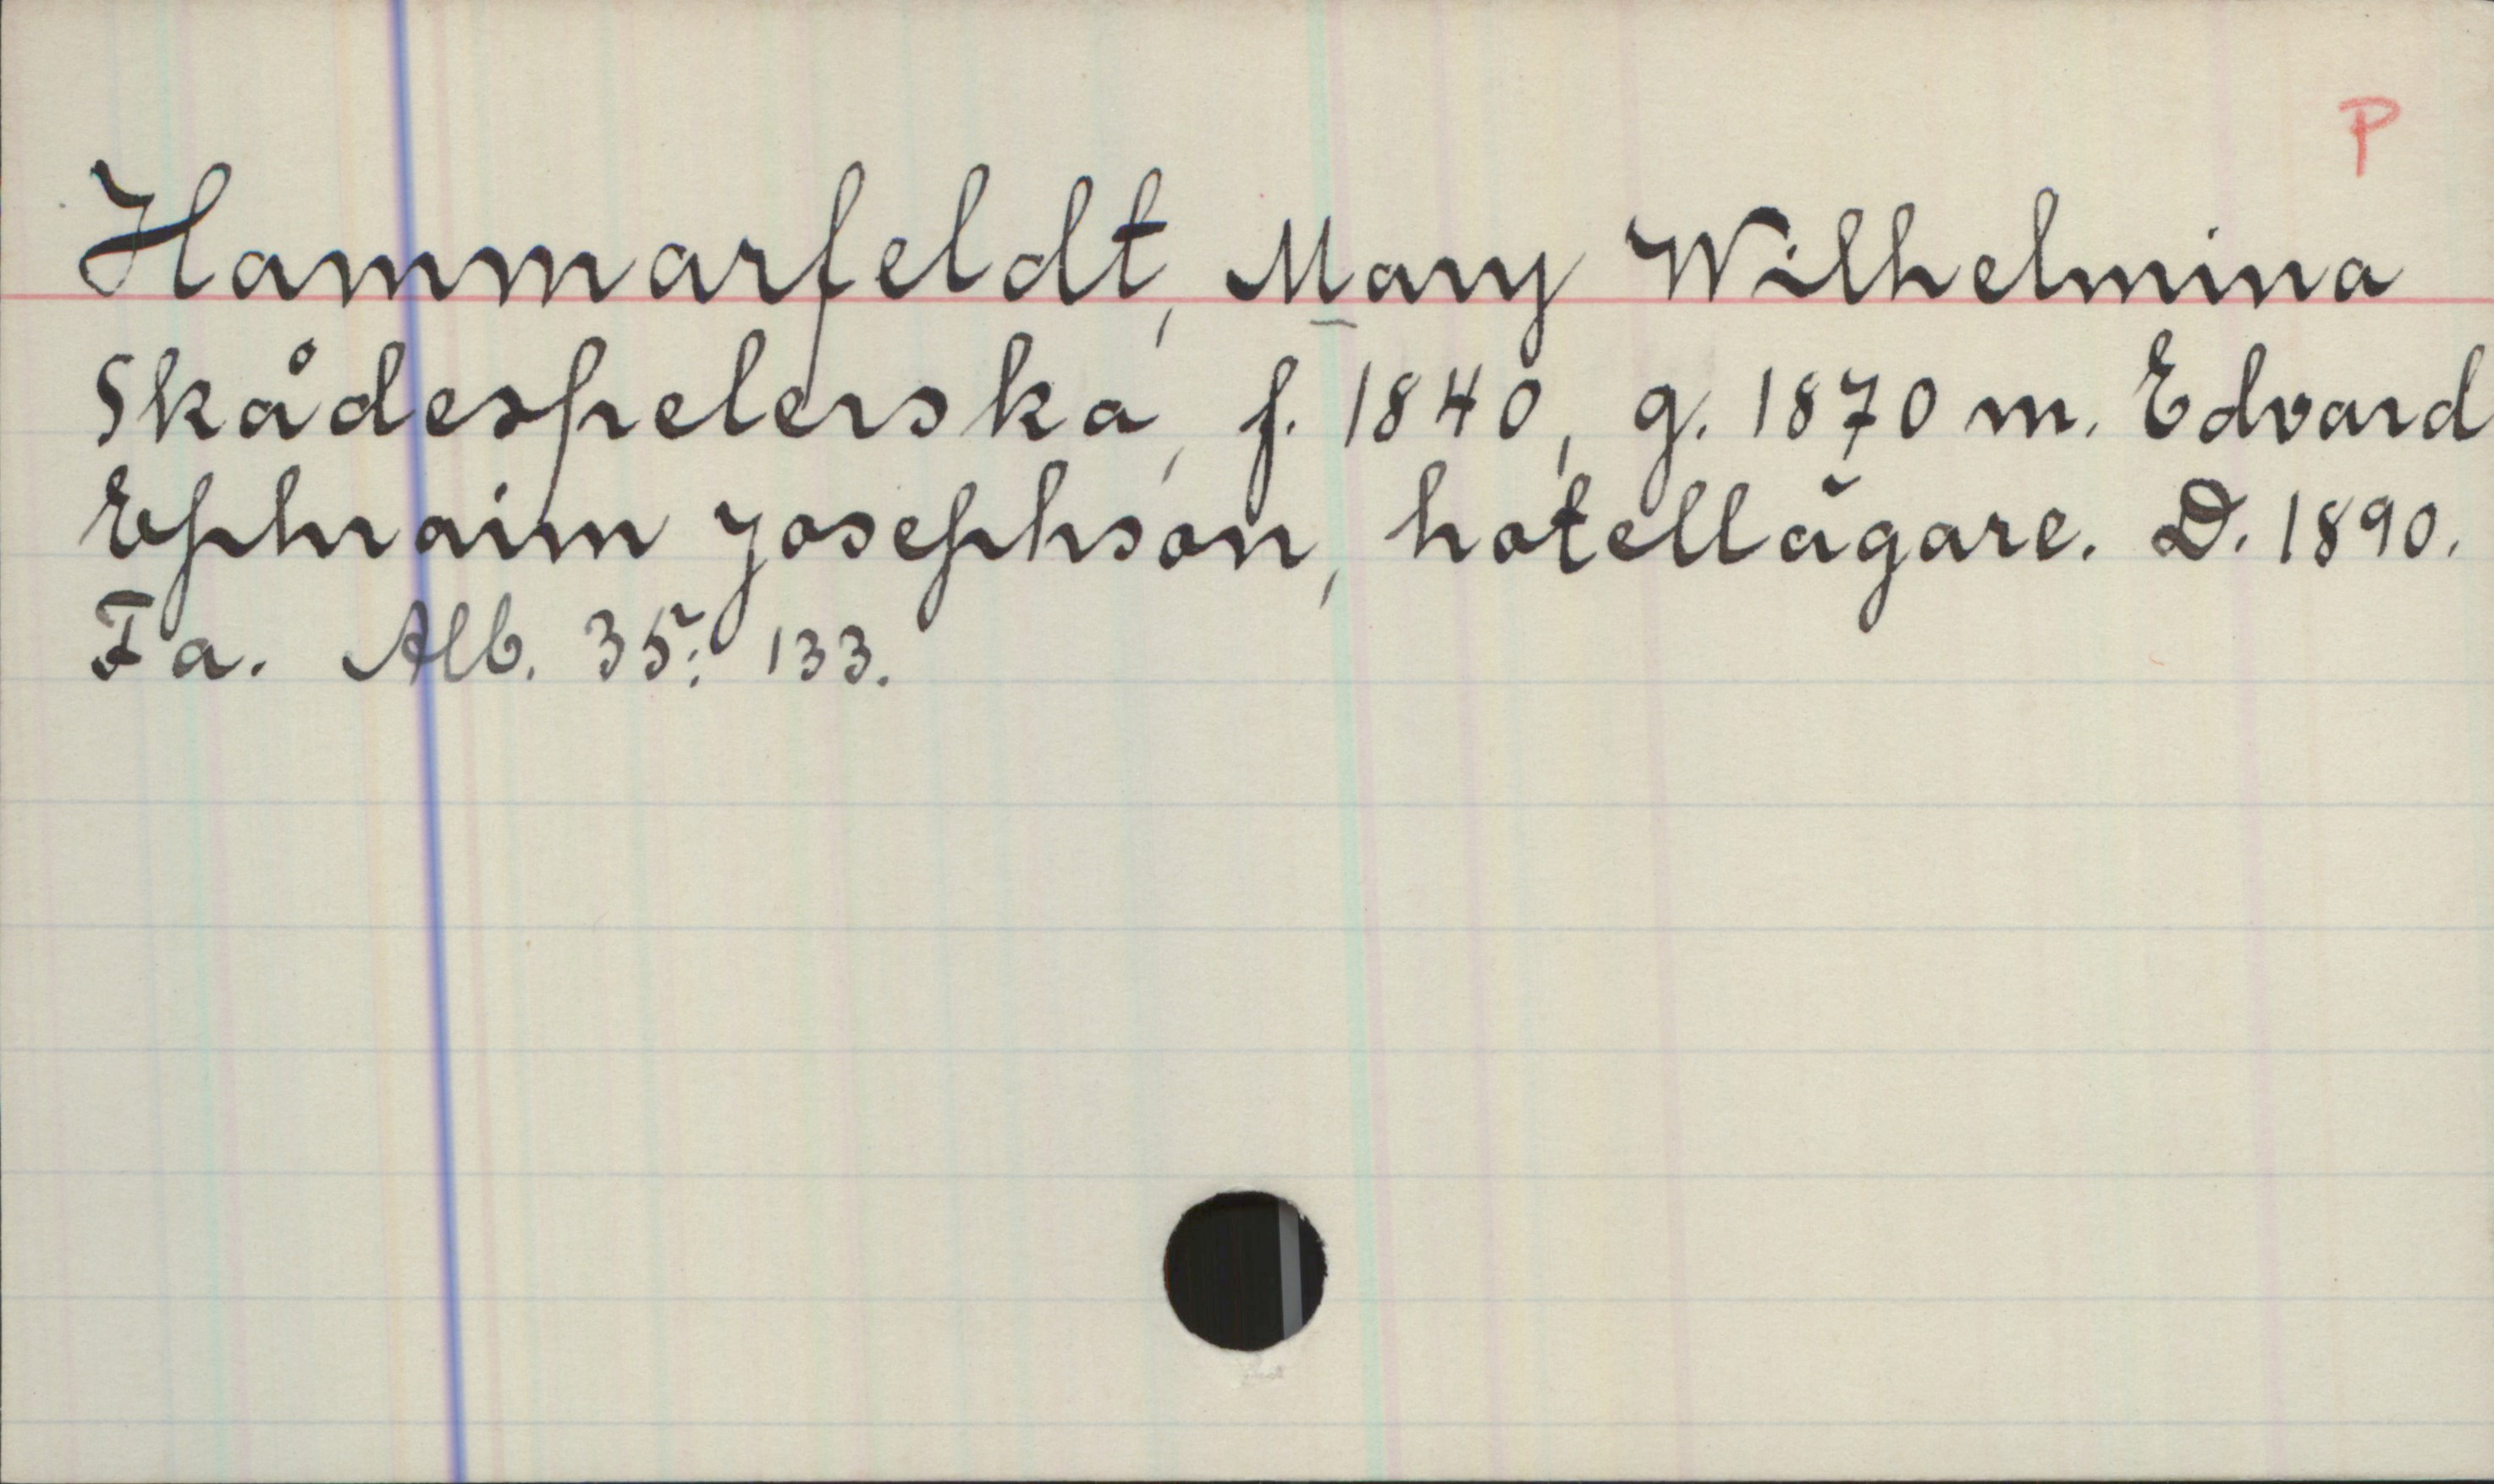 P
Hammarfeldt, Mary Wilhelmina
Skådespelerska, f. 1840, g. 1870 m. Edvard
Ephraim Josephson, hotellägare. D. 1890.
Fa. Alb. 35: 133.